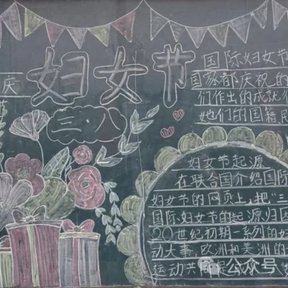 庆
妇女节
三八
国际妇女节
国家都庆祝的
们作出的成就
她们的国籍
妇女节起源
在联合国介绍国际
妇女节的网页上，把“三
国际妇女节的起源归因
世纪初期一系列的
动大事，欧洲和美洲的
运动共
公众号